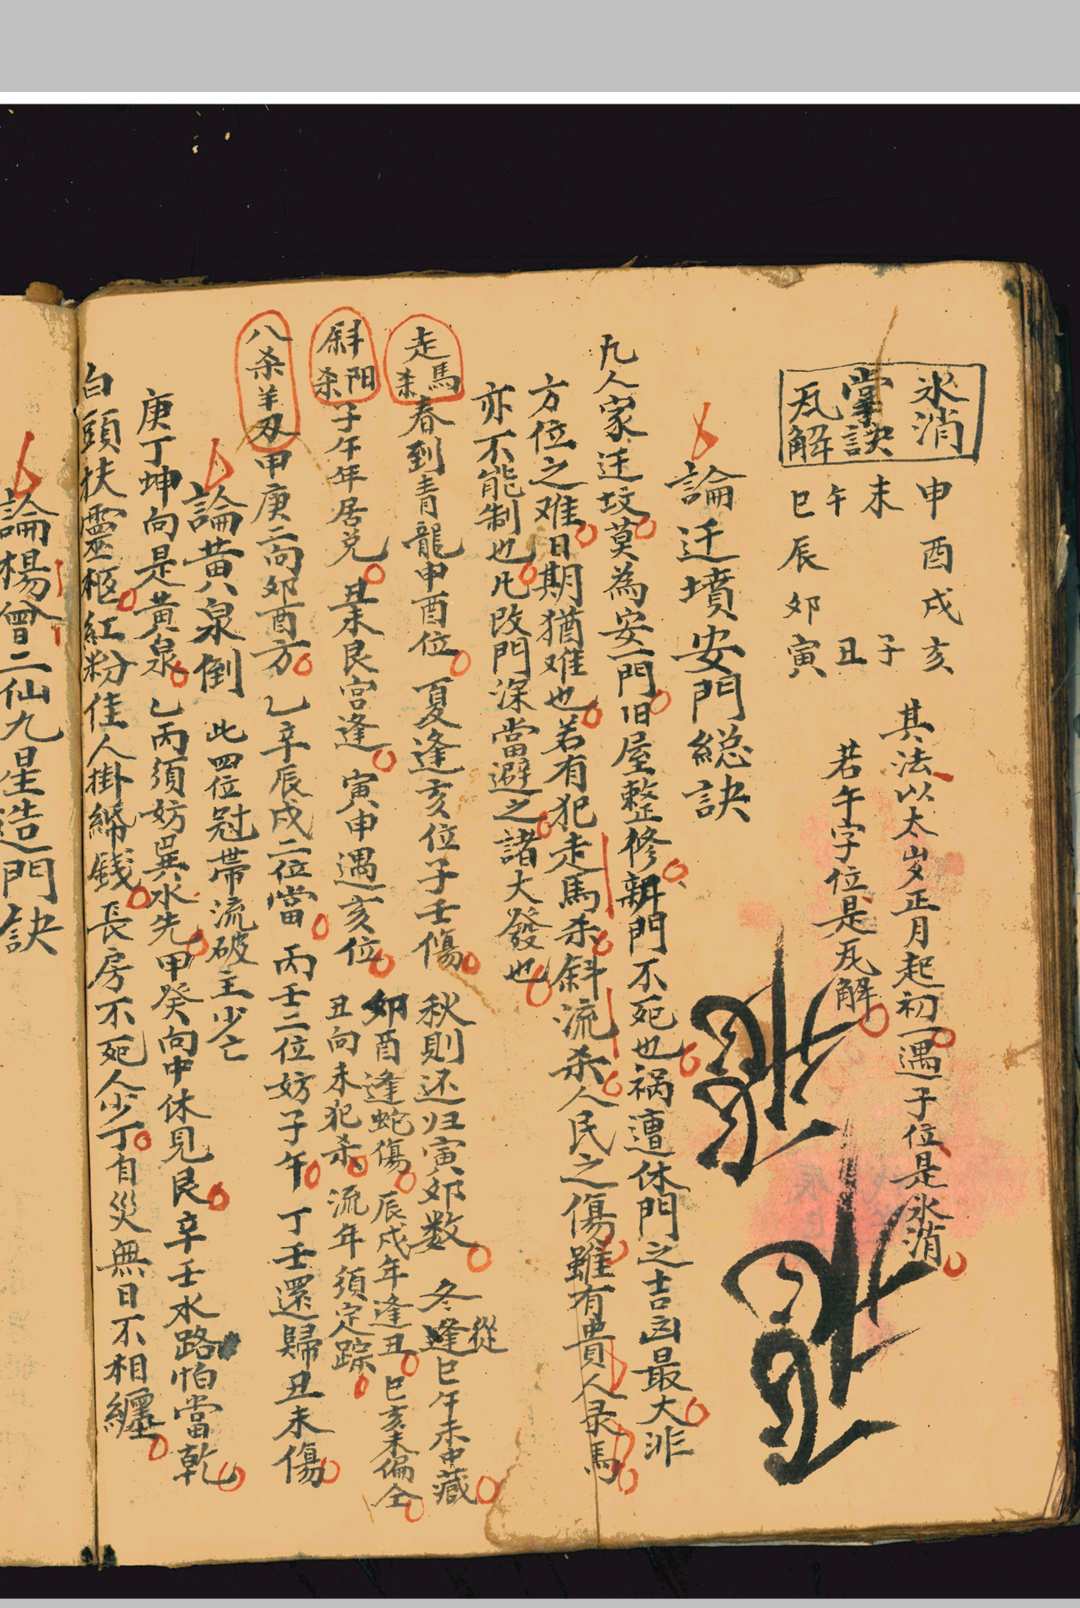 氷消
掌訣
瓦解
申酉戌亥
未 子
午 丑
巳辰卯寅
其法以太岁正月起初一遇子位是氷消
若午字位是瓦解
論迁墳安門総訣
凡人家迁坟莫為安門旧屋整修新門不死也祸遭休門之吉凶最大非
方位之难日期猶难也若有犯走馬杀斜流杀人民之傷雖有貴人录馬
亦不能制也凡改門深當避之諸大發也
走馬杀 春到青龍申酉位 夏逢亥位子壬傷 秋則还归寅卯数 冬逢從巳午未中藏
斜阳杀 子午年居兑 丑未艮宫逢 寅申遇亥位 卯酉逢蛇傷 辰戌年逢丑 巳亥未偏全
丑向未犯杀 流年須定踪
八杀羊刃 甲庚二向卯酉方 乙辛辰戌二位當 丙壬二位妨子午 丁壬還歸丑未傷
論黄泉倒 此四位冠帶流破主少亡
庚丁坤向是黄泉 乙丙須妨巽水先 甲癸向中休見艮 辛壬水路怕當乾
白頭扶靈柩 紅粉佳人掛綿錢 長房不死人少丁 自災無日不相纏
論楊曾二仙九星造門訣